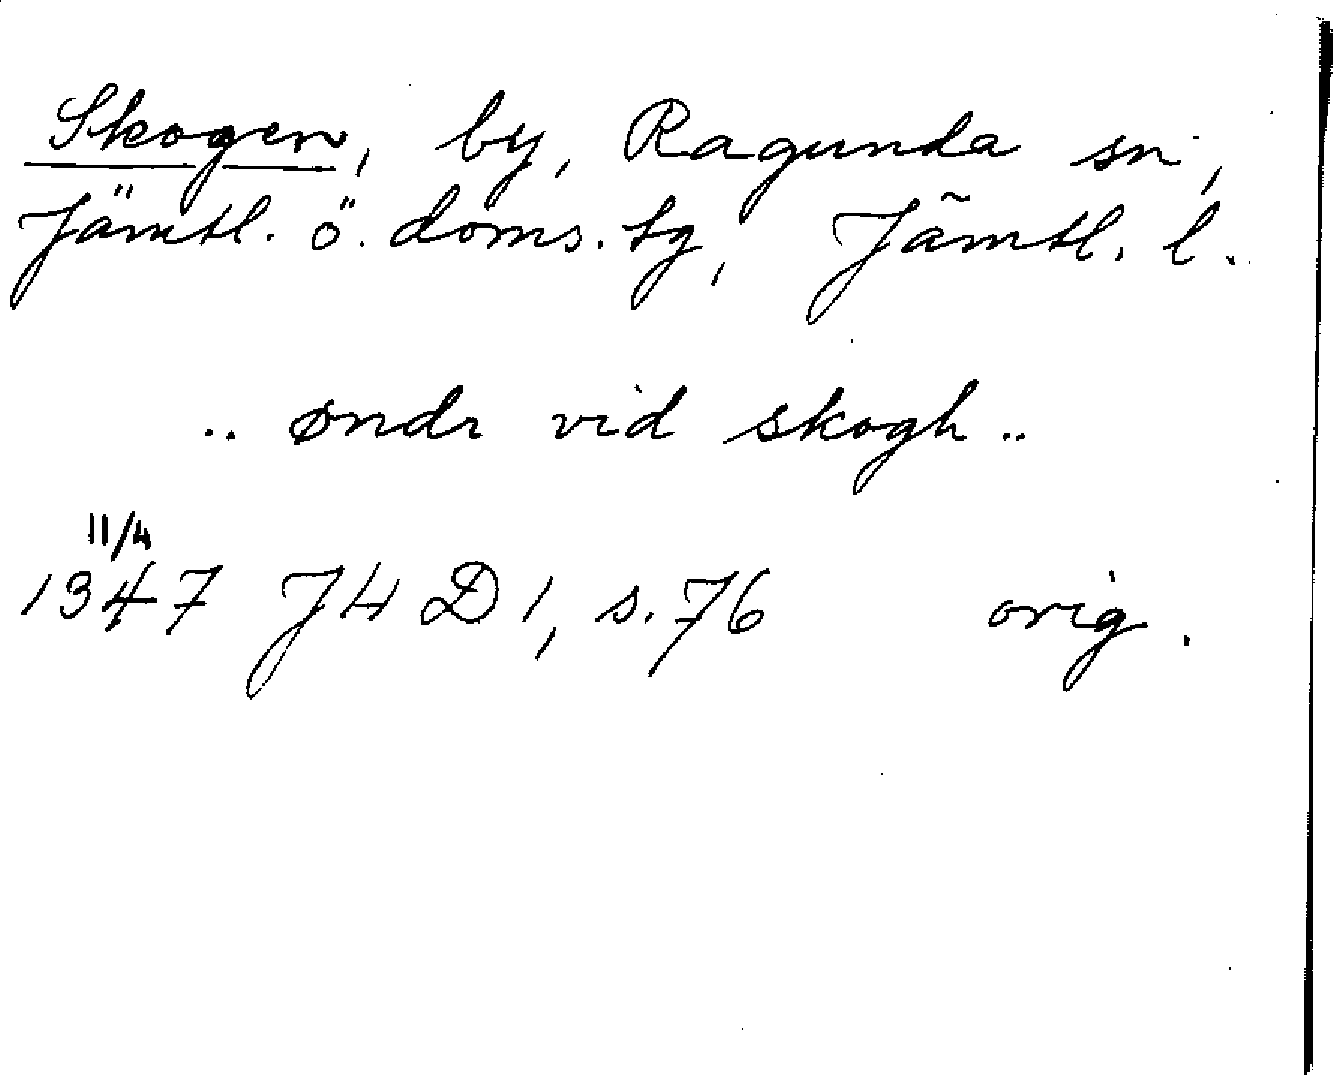 Skogen, by, Ragunda sn,
Jämtl. ö. doms. tg, Jämtl. l.
.. øndr vid skogh ..
11/4
1347 JH D 1, s. 76 orig.